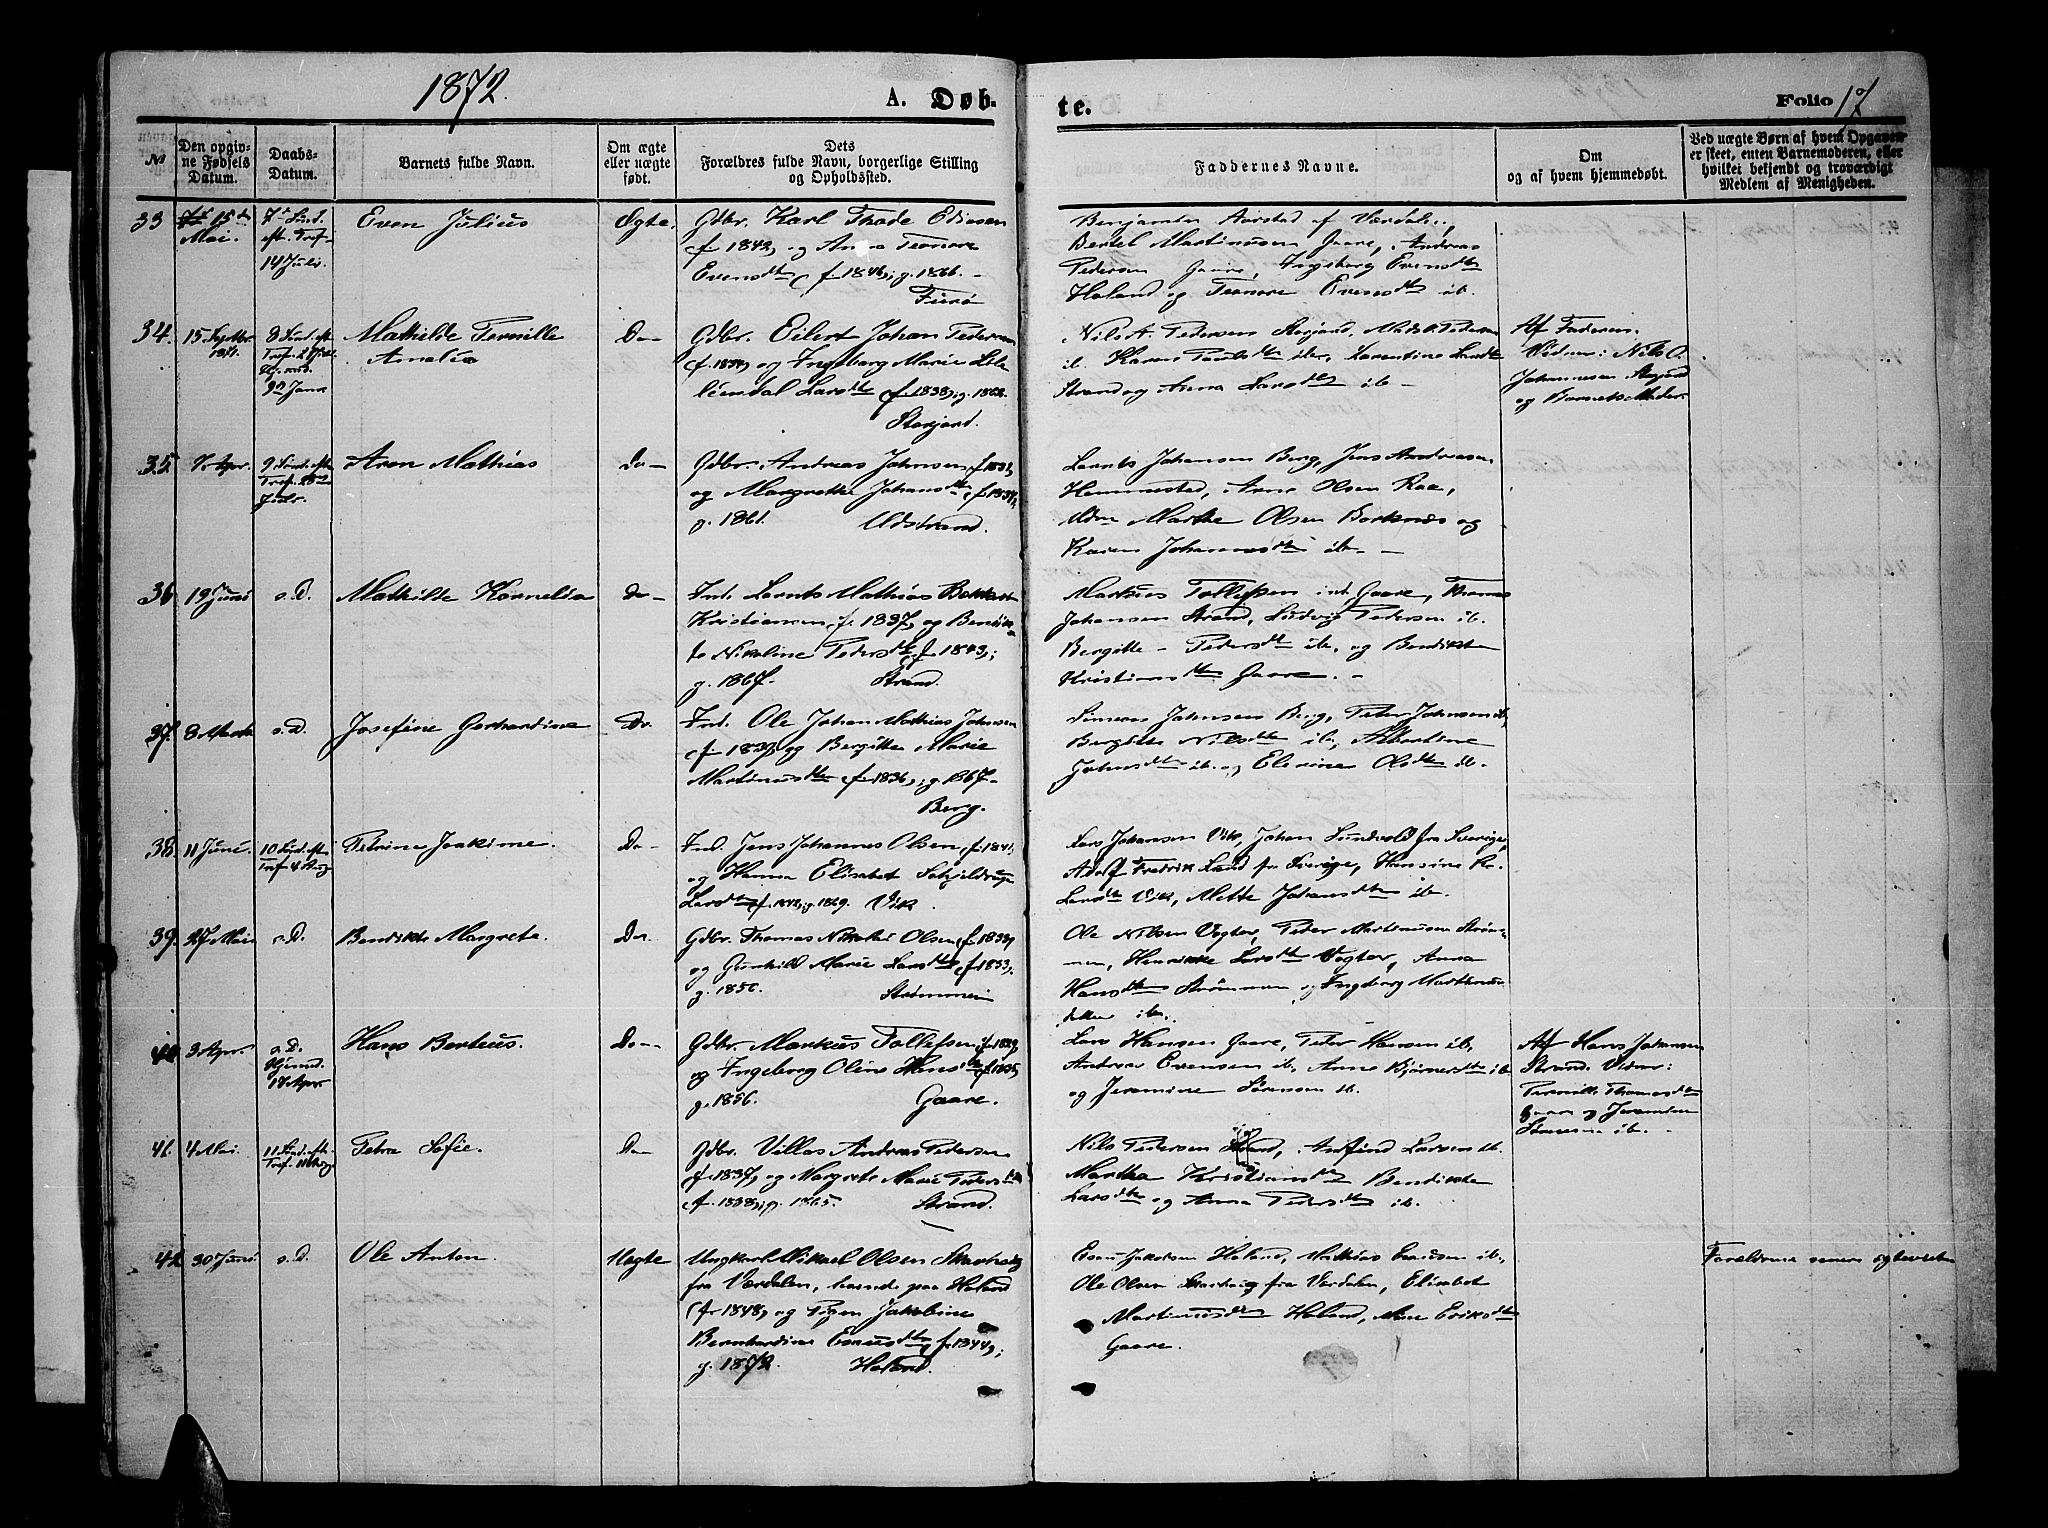 1872.
A. Døb-
te.
Folio 17
№
Den opgiv-
ne Fødsels
Datum.
Daabs-
Datum.
Barnets fulde Navn.
Om ægte
eller uægte
født.
Dets
Forældres fulde Navn, borgerlige Stilling
og Opholdssted.
Faddernes Navne.
Om
og af hvem hjemmedøbt.
Ved uægte Børn af hvem Opgaven
er skeet, enten Barnemoderen, eller
hvilket bekjendt og troværdigt
Medlem af Menigheden.
33
15de
Mai.
7d Sønd.
eft. Tref.
14 Juli.
Even Julius
Ægte.
Gdbr. Karl Thode Ediasen
f 1843, og Anna Leonore
Evensdtr f 1846; g. 1866.
Furø
Benjamin Aarstad af Værdalen,
Bertel Martinusen Gaare, Andreas
Pedersen Gaare, Ingeborg Evensdtr
Haland og Leonore Evensdtr ib.
34.
15 Septbr.
1871.
8 Sønd. eft
Tref. 21 Juli
9n Janr
Mathilde Pernille
Amalia
Do
Gdbr. Eilert Johan Pedersen
f. 1834, og Ingeborg Marie
Larsdtr f 1838, g. 1862.
Storjord.
Nils A. Pedersen Storjord, Pedersen
ib. Karen ib., Larentine Larsdtr
Strand og Anna Larsdtr ib -
Af Faderen.
Vidner: Nils O.
Johannesen Storjord
og Barnets Moder.
35
7. Apr.
9 Sønd. eft
Tref. 28de
Juli.
Aron Mathias
Do
Gdbr. Andreas Johnsen, f 1833,
og Margrethe Johansdtr, f 1837,
g. 1861. Udstrand.
Lornts Johansen Berg, Jens Andreasen
Hammerstad, Arne Olsen Raa,
Marthe Olsen Borknæs og
Karen Johannesdtr ib. -
36
19de Juni
s. D.
Mathilde Kornelia
Do
Ind. Lornts Mathias
Kristiansen, f. 1837, og Bendik-
te Nikoline Pedersdtr f 1843;
g. 1867. Strand.
Markus Tollefsen ind. Gaare, Thomas
Johansen Strand, Ludvig Pedersen ib.
Bergitte Pedersdtr ib, og Bendikte
Kristiansdtr Gaare. -
37.
8 Marts
s. D.
Josefine Gerhardine
Do.
Ind. Ole Johan Mathias Johnsen
f 1839 og Bergitte Marie
Martinusdtr f 1836, g 1867.
Berg.
Simon Johnsen Berg, Peter Johnsen ib,
Bergitte Nilsdtr ib, Albertine
Johnsdtr ib. og Elenine Olsdtr ib.
38.
11 Juni.
10 Sønd. eft
Tref 4 Aug
Petrine Joakime.
Do
Ind. Jens Johannes Olsen, f 1841,
og Hanna Elisabet Schjeldrup
Larsdtr f. 1843, g. 1869. Vik.
Lars Johansen Vik, Johan Sundvold fra Sverige,
Adolf Fredrik Lund fra Sverige, Hansine K.
Larsdtr Vik, Mette Johansdtr ib.
39.
27 Mai
s. D.
Bendikte Margrete.
Do.
Gdbr. Thomas Nikolai Olsen, f 1833,
og Gunhild Marie Larsdtr, f 1833,
g. 1856. Strømmen
Ole Nilsen Vogter, Peder Martinusen Strøm-
men, Henrikke Larsdtr Vogter, Anna
Hansdtr Strømmen og Ingeborg Martinus-
datter ib.
40
3 Apr.
s. D.
Hjemd.
17 Apr
Hans Berteus.
Do
Gdbr. Markus Tollefsen f 1829,
og Ingeborg Oline Hansdtr f 1835,
g. 1856. Gaare.
Lars Hansen Gaare, Peter Hansen ib,
Andreas Evensen ib, Anne Bjørnersdtr ib
og Jeremine Sørensen ib.
Af Hans Johansen
Strand. Vidner:
Pernille Thomasdtr
Gaare og Jeremine
Sørensen ib. -
41.
4 Mai.
11 Sønd. eft.
Tref. 11 Aug
Petra Sofie.
Do
Gdbr. Villas Andreas Pedersen
f 1837, og Margrete Marie Pedersdtr
f. 1838, g. 1865. Strand.
Nils Pedersen Strand, Anfind Larsen ib.
Martha Kristiansdtr Bendikte
Larsdtr og Anna Pedersdtr ib.
42
30 Juni
s. D.
Ole Anton.
Uægte
Ungkarl Mikael Olsen Skavhaug
fra Værdalen, boende paa Haland
f 1848, og Pigen Jakobine
Bernhardine Esausdtr f 1844,
g. 1872. Haland.
Esau Jakobsen Haland, Mathias Esausen ib.
Ole Olsen Skavhaug fra Værdalen, Elisabet
Martinusdtr Haland, Eriksdtr
Gaare.
Forældrene senere ægteviet